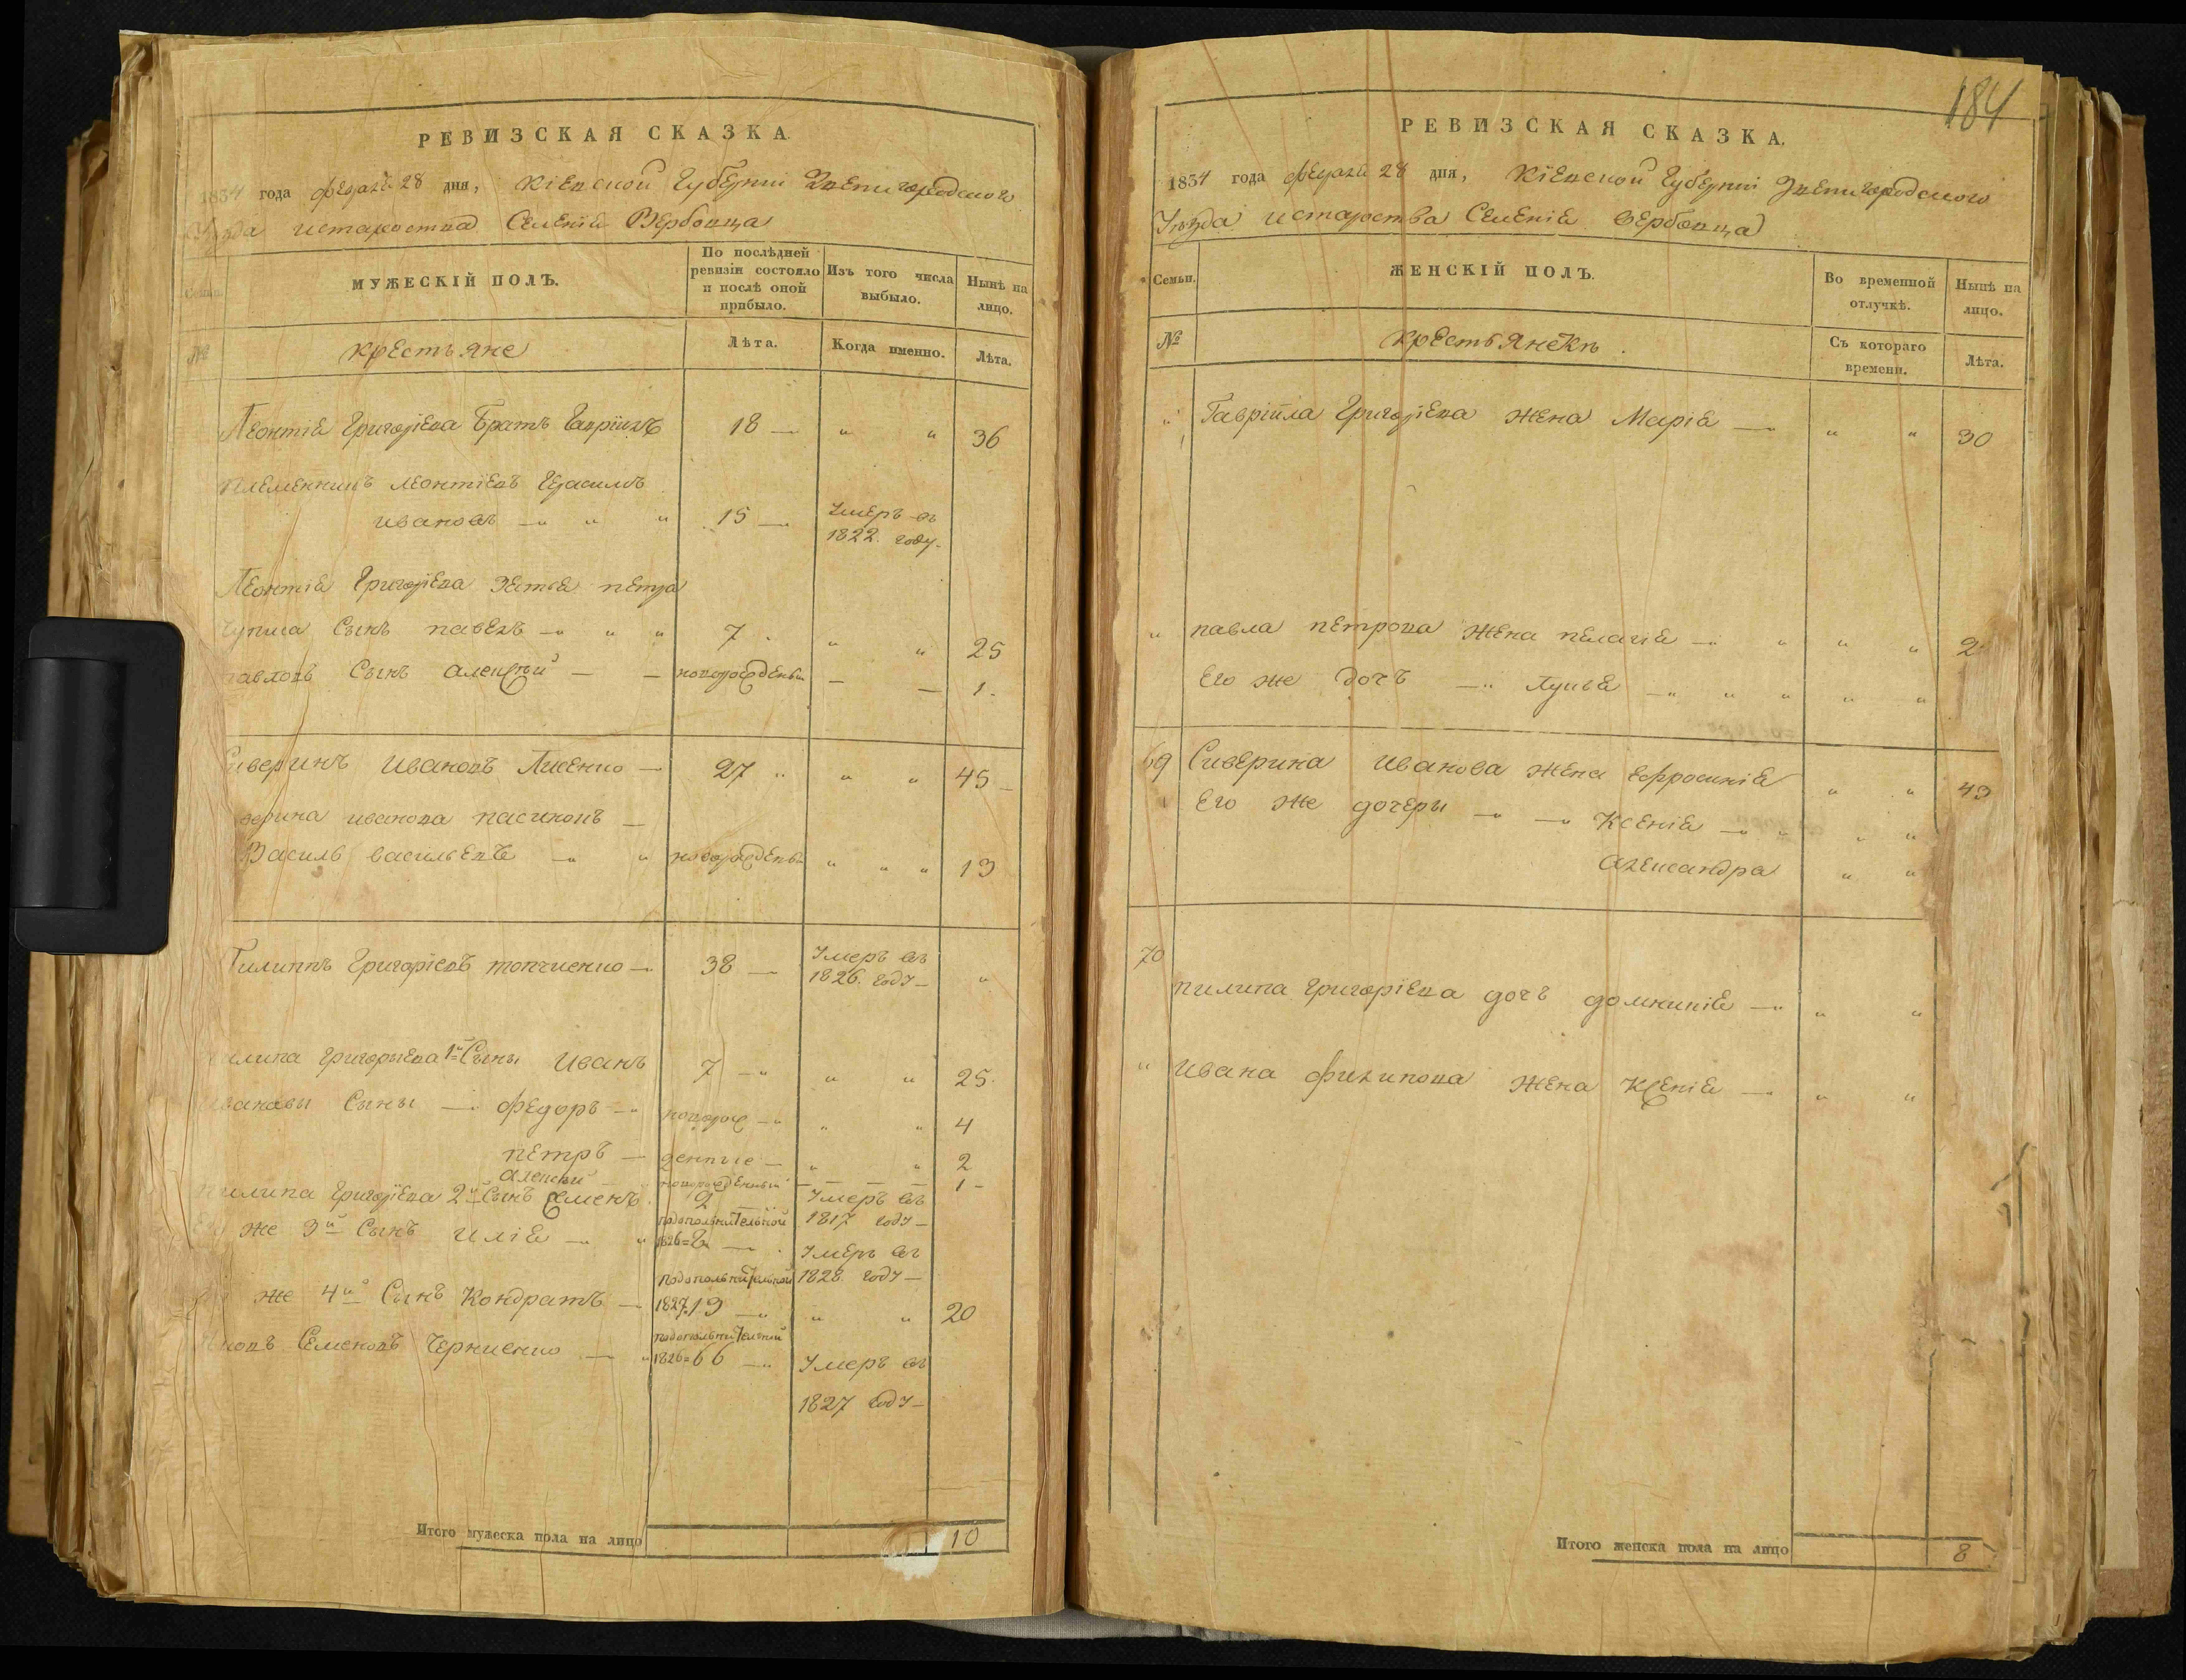 РЕВИЗСКАЯ СКАЗКА.
1834 года февраля 28 дня, Кіевской Губерніи Звенигородского
Уѣзда и староства Селенія Вербовца
Семьи.
МУЖЕСКІЙ ПОЛЪ.
По послѣдней ревизіи состояло и послѣ оной прибыло.
Изъ того числа выбыло.
Нынѣ на лицо.
№
крестьяне
Лѣта.
Когда именно.
Лѣта.
Леонтія Григорієва Братъ Гавріилъ 18 — " " 36
племенникъ леонтіевъ Герасимъ
ивановъ — " " 15 — Умеръ въ
1822. году
Леонтія Григорієва зятя петра
сынъ павелъ — " " 7 " " 25
павловъ Сынъ алексѣй — — новорожденъ — — 1
Сиверинъ Ивановъ Лисенко — 27 " " " 45
иванова пасинокъ —
Василь васильевъ — " новорожденъ " " " 13
Филиппъ Григорієвъ топчиенко — 38 — Умеръ въ
1826. году — "
Филипа григориева 1й Сынъ Иванъ 7 — " " 25
Ивановы Сыны — федоръ — новорож — " " 4
петръ — денные — " " 2
алексѣй — новорожденный — — — 1 —
Филипа григорієва 2й Сынъ Семенъ 2 Умеръ въ
1817 году —
Его же 3й Сынъ Илія — " подополнительной
1826=2 — Умеръ въ
1828. году —
Его же 4й Сынъ Кондратъ — подополнительной
1827.19 — " " 20
Яковъ Семеновъ Черниенко — " подополнительной
1826=66 — Умеръ въ
1827 году —
Итого мужеска пола на лицо 10
184
РЕВИЗСКАЯ СКАЗКА.
1834 года февраля 28 дня, Кіевской Губерніи Звенигородского
Уѣзда и староства Селенія Вербовца
Семьи.
ЖЕНСКІЙ ПОЛЪ.
Во временной отлучкѣ.
Нынѣ на лицо.
№
крестьянекъ.
Съ котораго времени.
Лѣта.
" Гавріила Григорієва жена Марія — " " 30
" павла петрова жена пелагія — " " " 2
Его же дочъ — лукія — " " " " "
69 Сиверина Иванова жена ефросинія " " 43
Его же дочеры — — Ксенія — " " "
александра " "
70
пилипа григорієва дочъ домникія — " "
" Ивана филипова жена Ксенія — " "
Итого женска пола на лицо 8